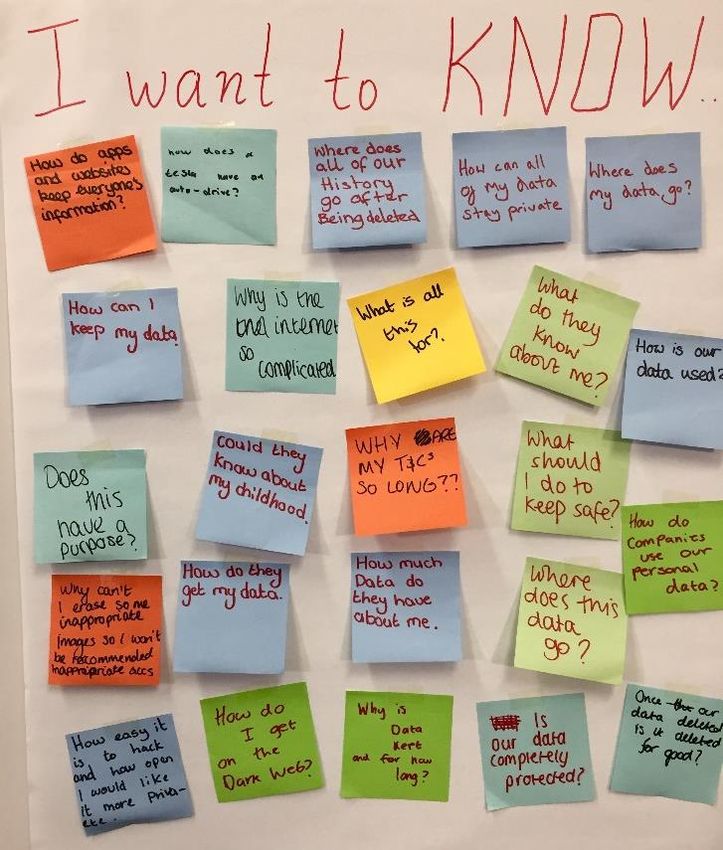 I want to KNOW..
How do apps
and websites
keep everyone's
information?
how does a
tesla have an
auto-drive?
Where does
all of our
History
go after
Being deleted
How can all
of my data
stay private
Where does
my data go?
How can I
keep my data
Why is the
internet
so
complicated
What is all
this
for?
What
do they
know
about me?
How is our
data used?
Does
this
have a
purpose?
Could they
know about
my childhood.
WHY ARE
MY T&C's
SO LONG??
What
should
I do to
keep safe?
How do
Companies
use our
personal
data?
Why can't
I erase some
inappropriate
Images so I won't
be recommended
inappropriate accs
How do they
get my data.
How much
Data do
they have
about me.
Where
does this
data
go?
How easy it
is to hack
and how open
I would like
it more priva-
ete.
How do
I get
on the
Dark Web?
Why is
Data
Kept
and for how
long?
Is
our data
completely
protected?
Once our
data deleted
Is it deleted
for good?